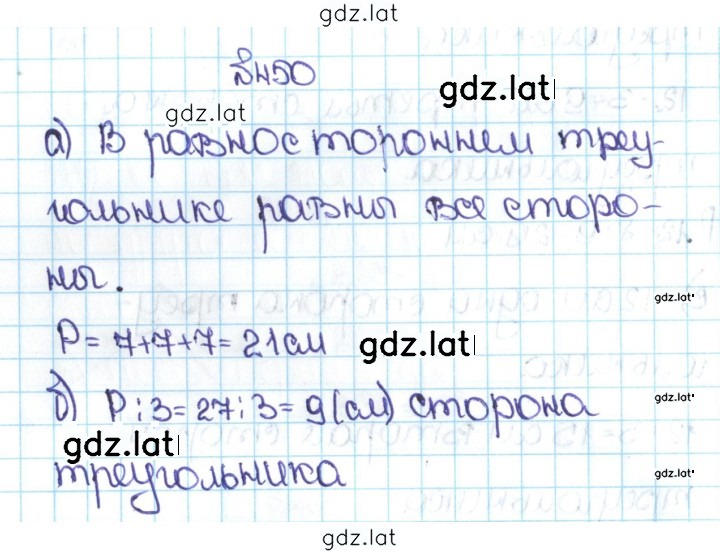 gdz.lat
№450
gdz.lat
gdz.lat
а) В равностороннем треу-
гольнике равны все сторо-
ны.
gdz.lat
P = 7+7+7 = 21 см
gdz.lat
б) P : 3 = 27 : 3 = 9 (см) сторона
gdz.lat
gdz.lat
треугольника
gdz.lat
gdz.lat